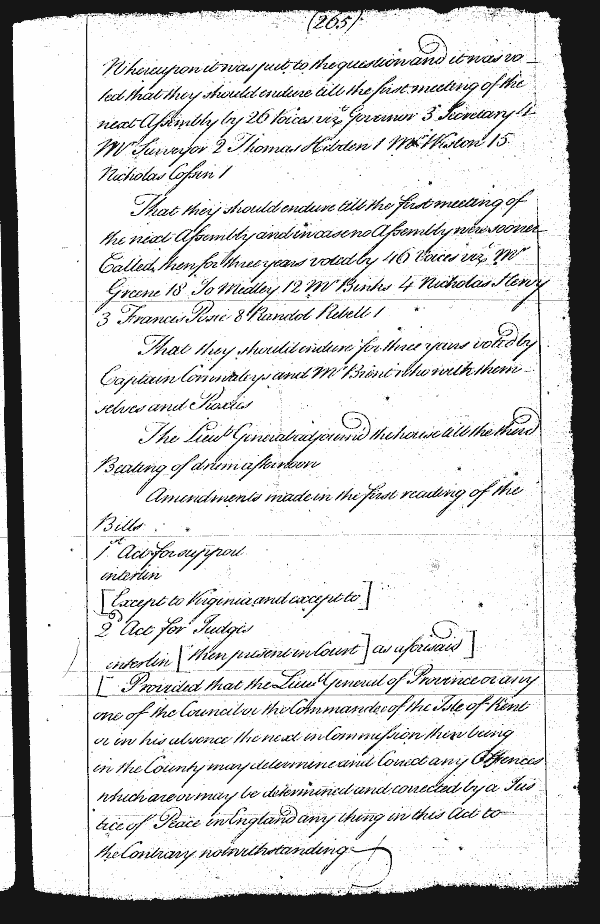 (265)
Whereupon it was put to the question and it was vo
ted that they should endure till the first meeting of the
next Assembly by 26 Voices vizt Governor 3 Secretary 4
Mr Surveyor 2 Thomas Hebden 1 Mr Weston 15
Nicholas Cossin 1
That they should endure till the first meeting of
the next Assembly and in case no Assembly were sooner
Called then for three years voted by 46 Voices vizt Mr
Greene 18 Jo Medley 12 Mr Binks 4 Nicholas Hervy
3 Francis Posie 8 Randol Rebell 1
That they should endure for three years voted by
Captain Cornwaleys and Mr Brent who with them
selves and Proxies
The Lieut General adjourned the house till the third
Beating of drum afternoon
Amendments made in the first reading of the
Bills
1st Act for support
interlin
[Except to Virginia and except to]
2d Act for Judges
interlin [then present in Court] as aforesaid]
[Provided that the Lieut General of Province or any
one of the Council or the Commander of the Isle of Kent
or in his absence the next in Commission then being
in the County may determine and Correct any Offences
which are or may be determined and corrected by a Jus
tice of Peace in England any thing in this Act to
the Contrary notwithstanding